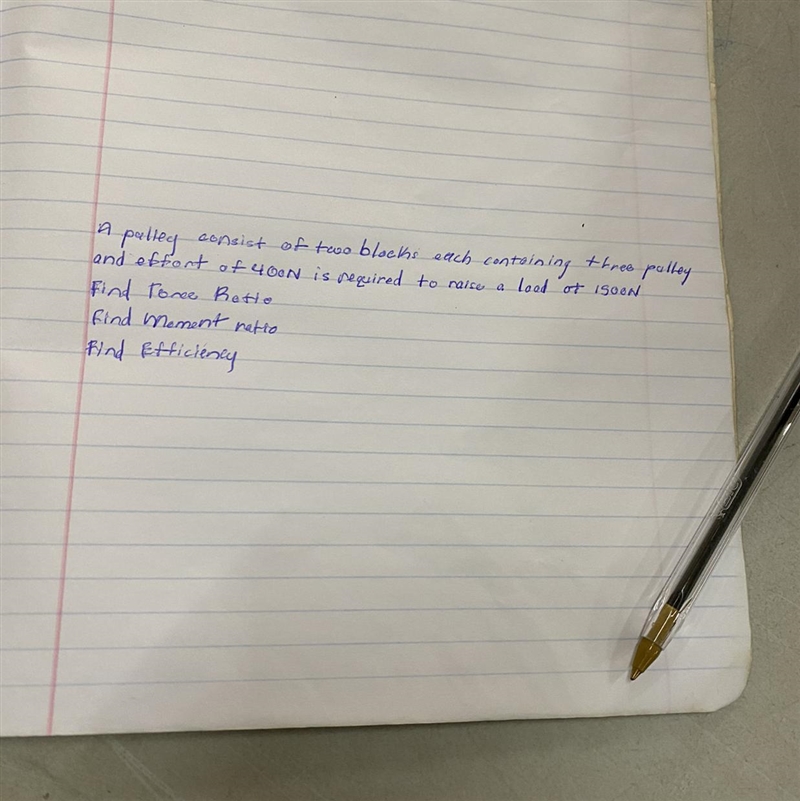 A pulley consist of two blocks each containing three pulley
and effort of 400N is required to raise a load of 1500N
Find Force Ratio
Find Moment ratio
Find Efficiency